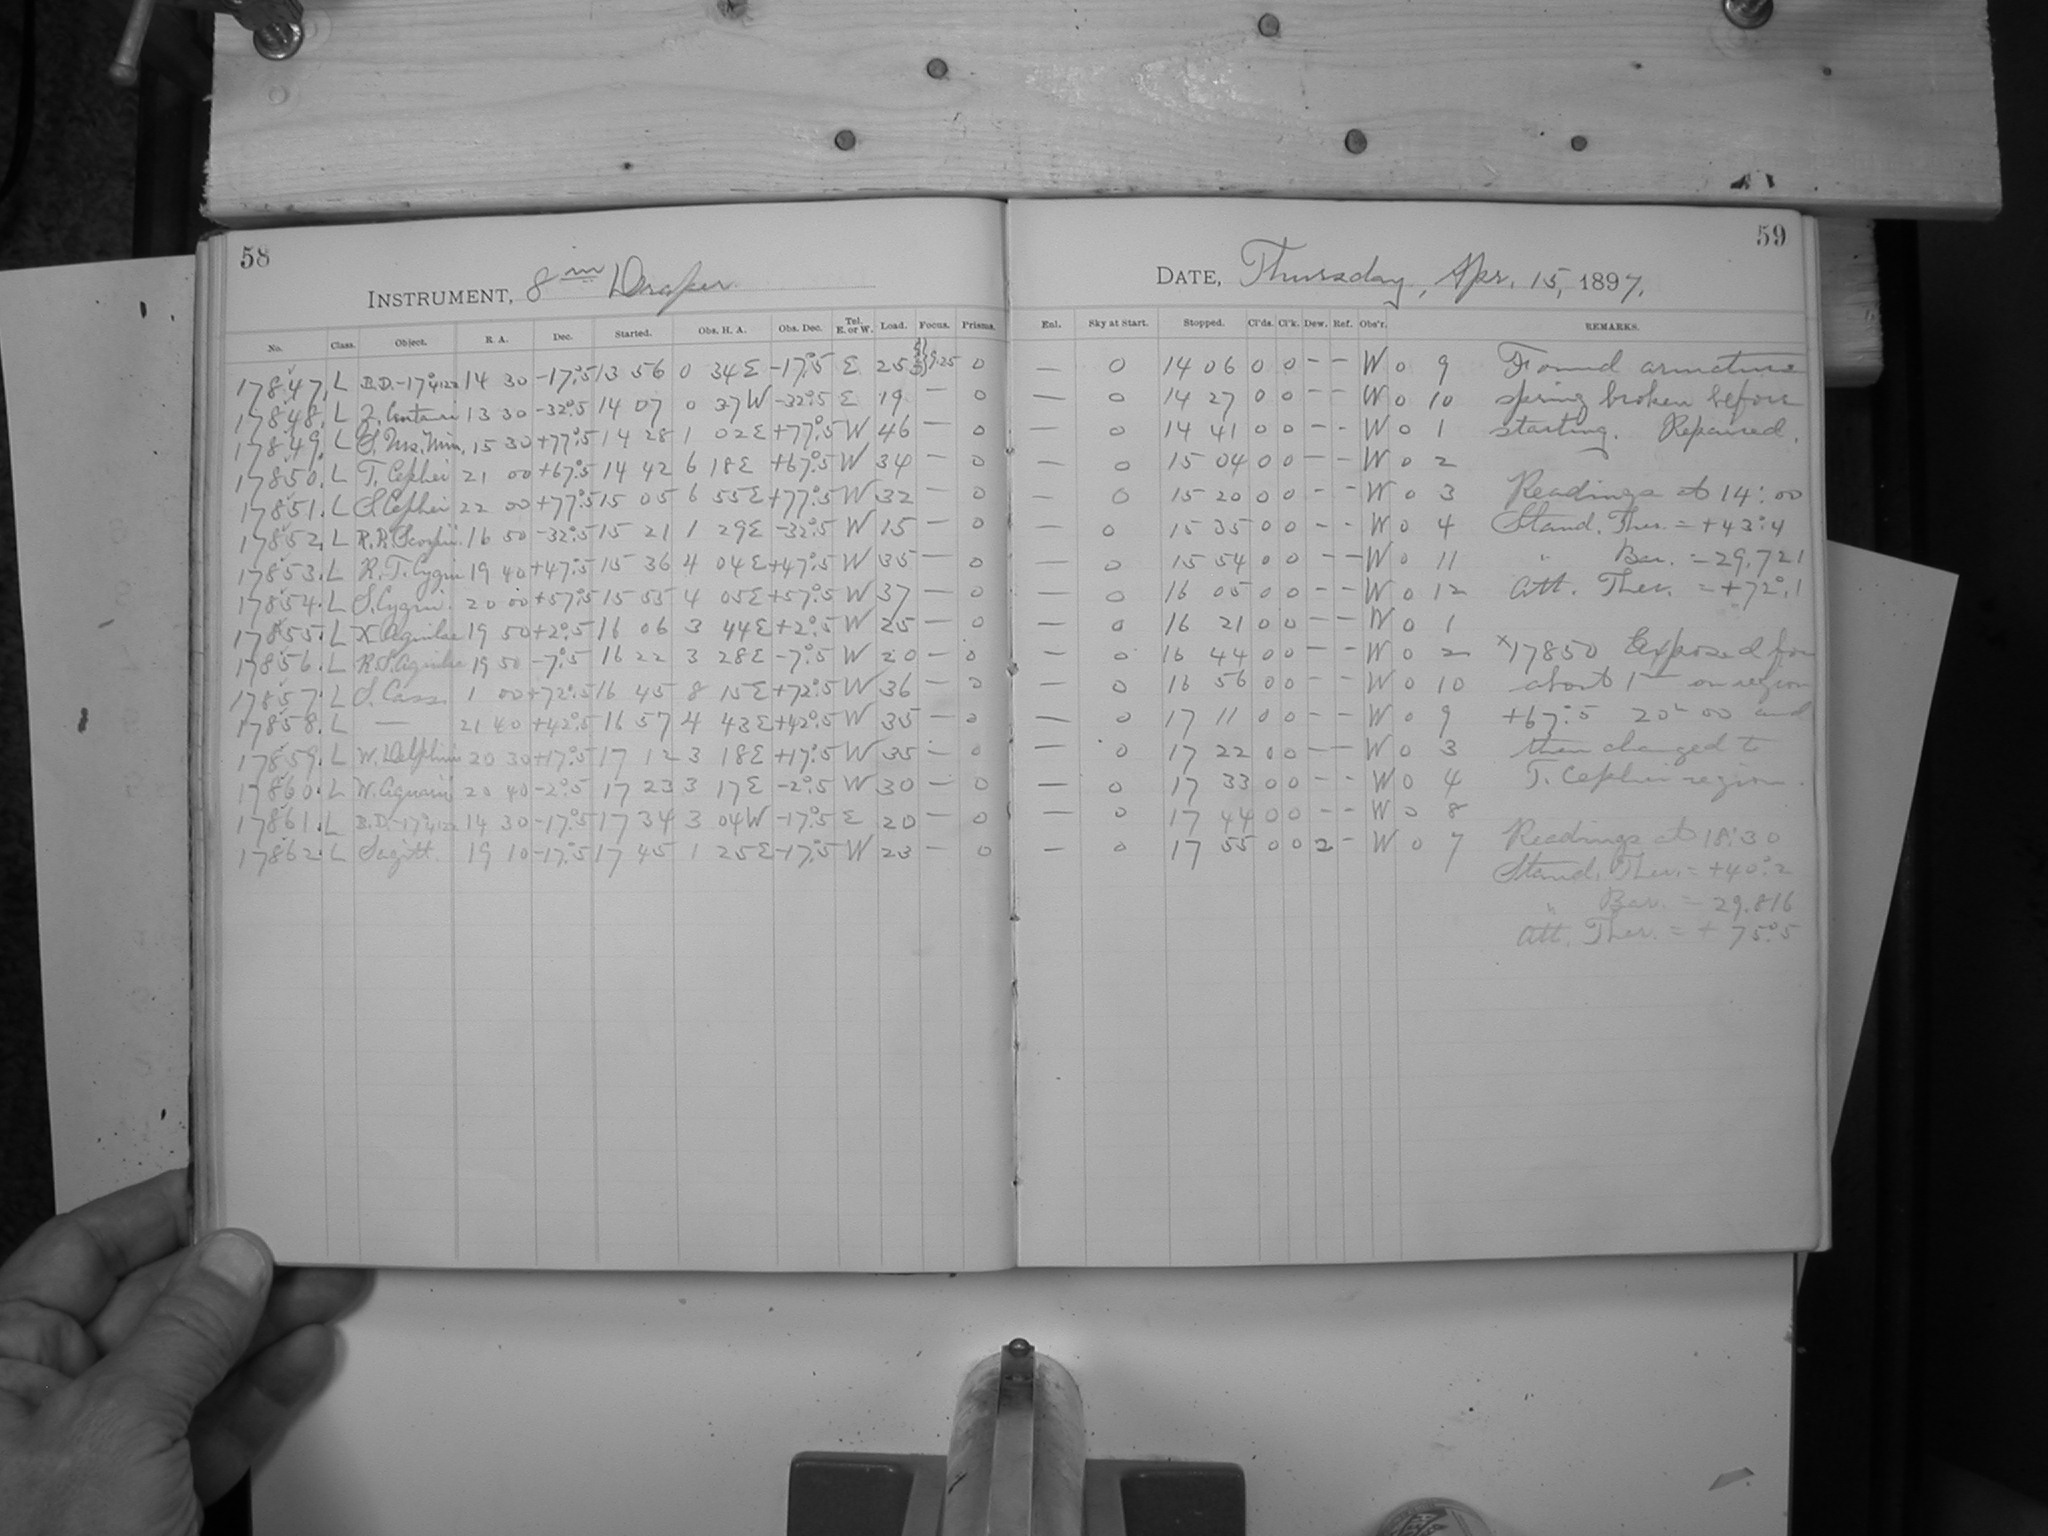 58
INSTRUMENT, 8in Draper.
No. Class. Object. R. A. Dec. Started. Obs. H. A. Obs. Dec. Tel. E. or W. Load. Focus. Prisms.
17847. L B.D.-17°4122 14 30 -17°.5 13 56 0 34E -17°.5 E 25 9.25 0
17848. L Z. Centauri 13 30 -32°.5 14 07 0 37W -32°.5 E 19 — 0
17849. L S. Urs. Min. 15 30 +77°.5 14 28 1 02E +77°.5 W 46 — 0
17850. L T. Cephei 21 00 +67°.5 14 42 6 18E +67°.5 W 34 — 0
17851. L S. Cephei 22 00 +77°.5 15 05 6 55E +77°.5 W 32 — 0
17852. L R.R. Scorpii. 16 50 -32°.5 15 21 1 29E -32°.5 W 15 — 0
17853. L R.T. Cygni 19 40 +47°.5 15 36 4 04E +47°.5 W 35 — 0
17854. L S. Cygni. 20 00 +57°.5 15 55 4 05E +57°.5 W 37 — 0
17855. L X Aquilae 19 50 +2°.5 16 06 3 44E +2°.5 W 25 — 0
17856. L R.S. Aquilae 19 50 -7°.5 16 22 3 28E -7°.5 W 20 — 0
17857. L S. Cass. 1 00 +72°.5 16 45 8 15E +72°.5 W 36 — 0
17858. L — 21 40 +42°.5 16 57 4 43E +42°.5 W 35 — 0
17859. L W. Delphini 20 30 +17°.5 17 12 3 18E +17°.5 W 35 — 0
17860. L W. Aquarii 20 40 -2°.5 17 23 3 17E -2°.5 W 30 — 0
17861. L B.D.-17°4122 14 30 -17°.5 17 34 3 04W -17°.5 E 20 — 0
17862. L Sagitt. 19 10 -17°.5 17 45 1 25E -17°.5 W 23 — 0
59
DATE, Thursday, Apr. 15, 1897.
Enl. Sky at Start. Stopped. Cl'ds. Cl'k. Dew. Ref. Obs'r. REMARKS.
— 0 14 06 0 0 – – W 0 9 Found armature
— 0 14 27 0 0 – – W 0 10 spring broken before
— 0 14 41 0 0 – – W 0 1 starting. Repaired.
— 0 15 04 0 0 – – W 0 2
— 0 15 20 0 0 – – W 0 3 Readings at 14:00
— 0 15 35 0 0 – – W 0 4 Stand. Ther. = +43°.4
— 0 15 54 0 0 – – W 0 11 " Bar. = 29.721
— 0 16 05 0 0 – – W 0 12 Att. Ther. = +72°.1
— 0 16 21 0 0 – – W 0 1
— 0 16 44 0 0 – – W 0 2 x17850 Exposed for
— 0 16 56 0 0 – – W 0 10 about 1m on region
— 0 17 11 0 0 – – W 0 9 +67°.5 20h 00 and
— 0 17 22 0 0 – – W 0 3 then changed to
— 0 17 33 0 0 – – W 0 4 T. Cephei region.
— 0 17 44 0 0 – – W 0 8
— 0 17 55 0 0 2 – W 0 7 Readings at 18:30
Stand. Ther. = +40°.2
" Bar. = 29.816
Att. Ther. = + 75°.5